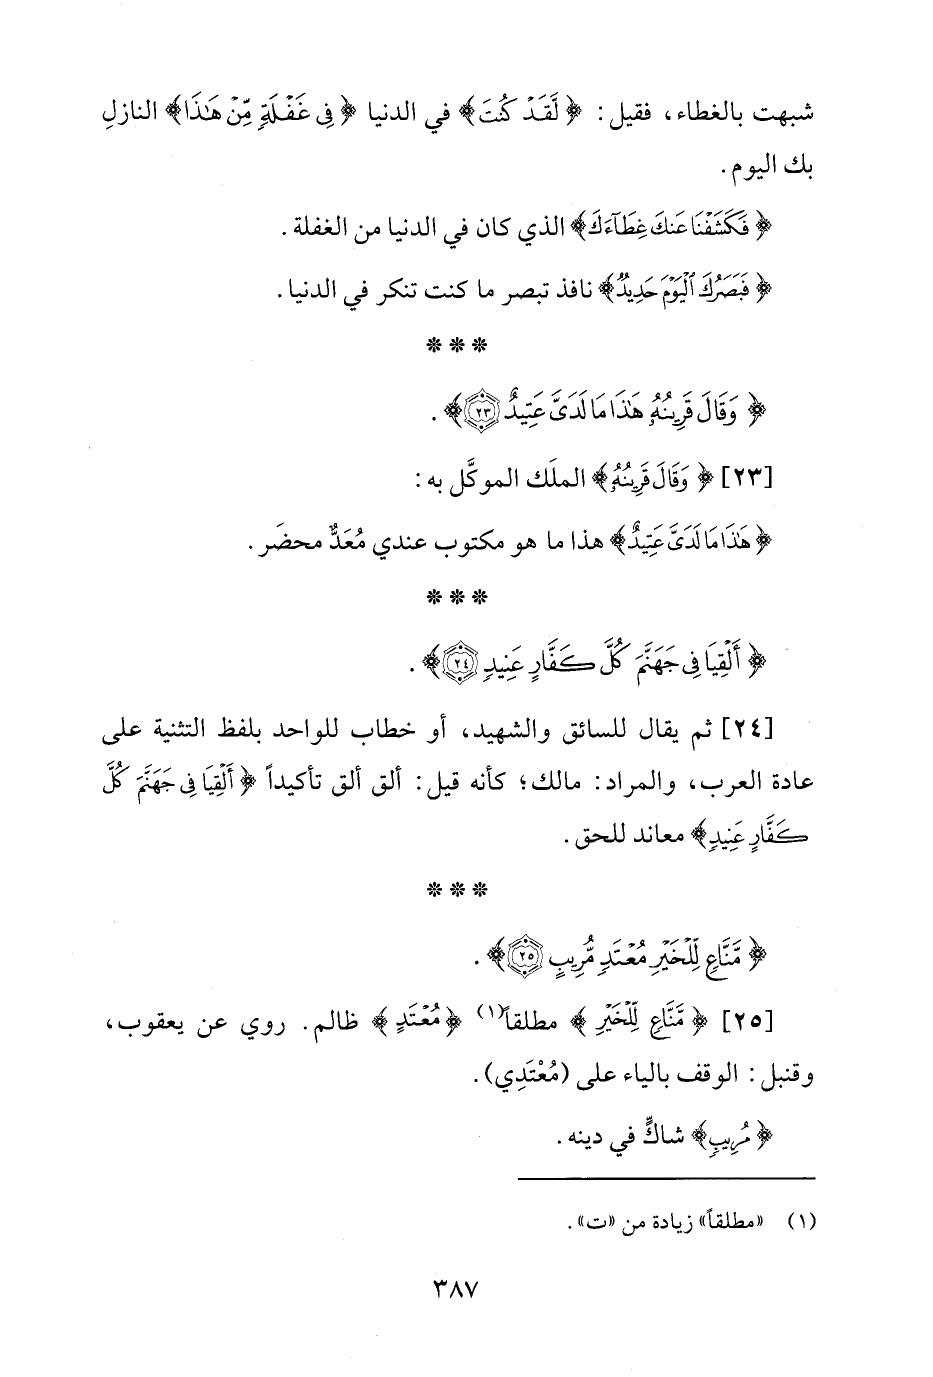 شبهت بالغطاء، فقيل: ﴿لَّقَدْ كُنتَ﴾ في الدنيا ﴿فِى غَفْلَةٍ مِّنْ هَٰذَا﴾ النازلِ
بك اليوم.
﴿فَكَشَفْنَا عَنكَ غِطَآءَكَ﴾ الذي كان في الدنيا من الغفلة.
﴿فَبَصَرُكَ ٱلْيَوْمَ حَدِيدٌ﴾ نافذ تبصر ما كنت تنكر في الدنيا.
* * *
﴿وَقَالَ قَرِينُهُۥ هَٰذَا مَا لَدَىَّ عَتِيدٌ ٢٣﴾.
[٢٣] ﴿وَقَالَ قَرِينُهُۥ﴾ الملَك الموكَّل به:
﴿هَٰذَا مَا لَدَىَّ عَتِيدٌ﴾ هذا ما هو مكتوب عندي مُعَدٌّ محضَر.
* * *
﴿أَلْقِيَا فِى جَهَنَّمَ كُلَّ كَفَّارٍ عَنِيدٍ ٢٤﴾.
[٢٤] ثم يقال للسائق والشهيد، أو خطاب للواحد بلفظ التثنية على
عادة العرب، والمراد: مالك؛ كأنه قيل: ألق ألق تأكيداً ﴿أَلْقِيَا فِى جَهَنَّمَ كُلَّ
كَفَّارٍ عَنِيدٍ﴾ معاند للحق.
* * *
﴿مَّنَّاعٍ لِّلْخَيْرِ مُعْتَدٍ مُّرِيبٍ ٢٥﴾.
[٢٥] ﴿مَّنَّاعٍ لِّلْخَيْرِ﴾ مطلقاً(١) ﴿مُعْتَدٍ﴾ ظالم. روي عن يعقوب،
وقنبل: الوقف بالياء على (مُعْتَدِي).
﴿مُرِيبٍ﴾ شاكٍّ في دينه.
(١) «مطلقاً» زيادة من «ت».
٣٨٧